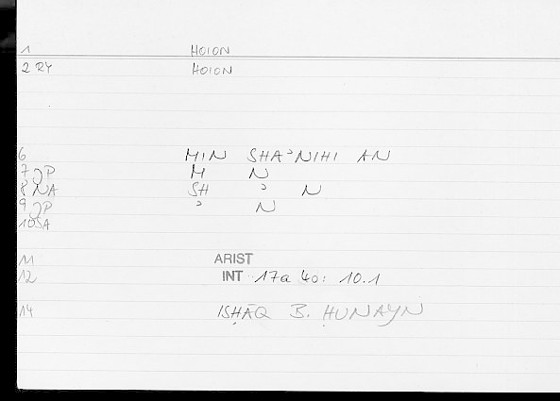 1 HOION
2 RY HOION
6 MIN SHAʾNIHI AN
7 JP M N
8 NA SH ʾ N
9 JP ʾ N
10 SA
11 ARIST
12 INT 17a 40: 10.1
14 ISḤĀQ B. ḤUNAYN